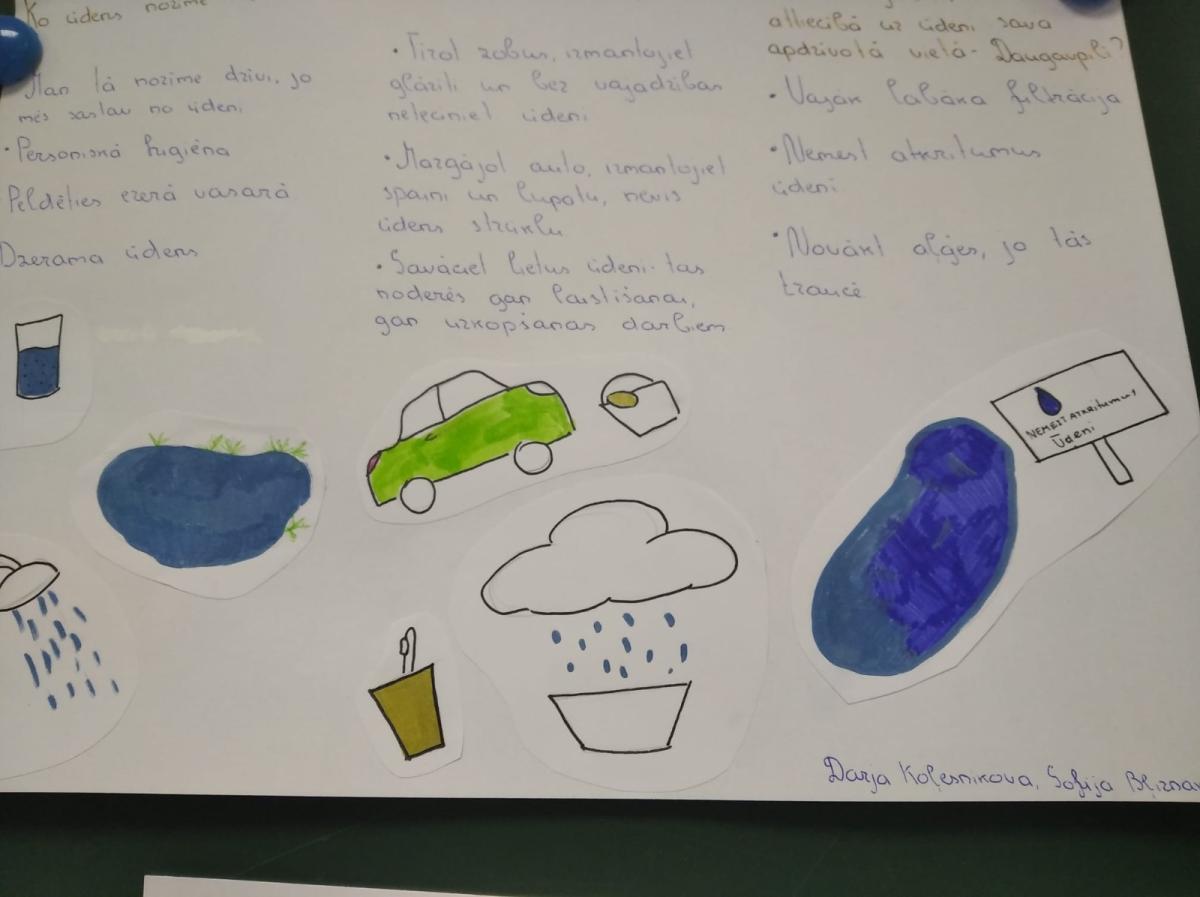 Ko ūdens nozīmē
Man tā nozīmē dzīvi, jo
mēs sastāv no ūdeni
·Personiskā higiēna
Peldēties ezerā vasarā
Dzerama ūdens
·Tīrot zobus, izmantojiet
glāzīti un bez vajadzības
neteciniet ūdeni
·Mazgājot auto, izmantojiet
spaini un lupatu, nevis
ūdens strūklu
·Savāciet lietus ūdeni- tas
noderēs gan laistīšanai,
gan uzkopšanas darbiem
attiecībā uz ūdeni savā
apdzīvotā vietā- Daugavpilī?
·Vajak labāka filtrācija
·Nemest atkritumus
ūdenī
·Novākt aļģes, jo tās
traucē
NEMEST ATKRitumus
Ūdenī
Darja Koļesnikova, Sofija Bļizna